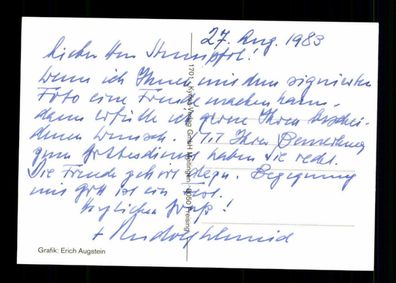 27. Aug. 1983
Lieber Herr Strumpfl!
Wenn ich Ihnen mit dem signierten
Foto eine Freude machen kann,
dann erfülle ich gerne Ihren beschei-
denen Wunsch. Mit Ihrer Bemerkung
zum Gottesdienst haben Sie recht.
Die Freude gehört dazu. Begegnung
mit Gott ist ein Fest.
Herzlichen Gruß!
+ Rudolf Schmid
Grafik: Erich Augstein
Kyrios-Verlag GmbH Meitingen · 8050 Freising